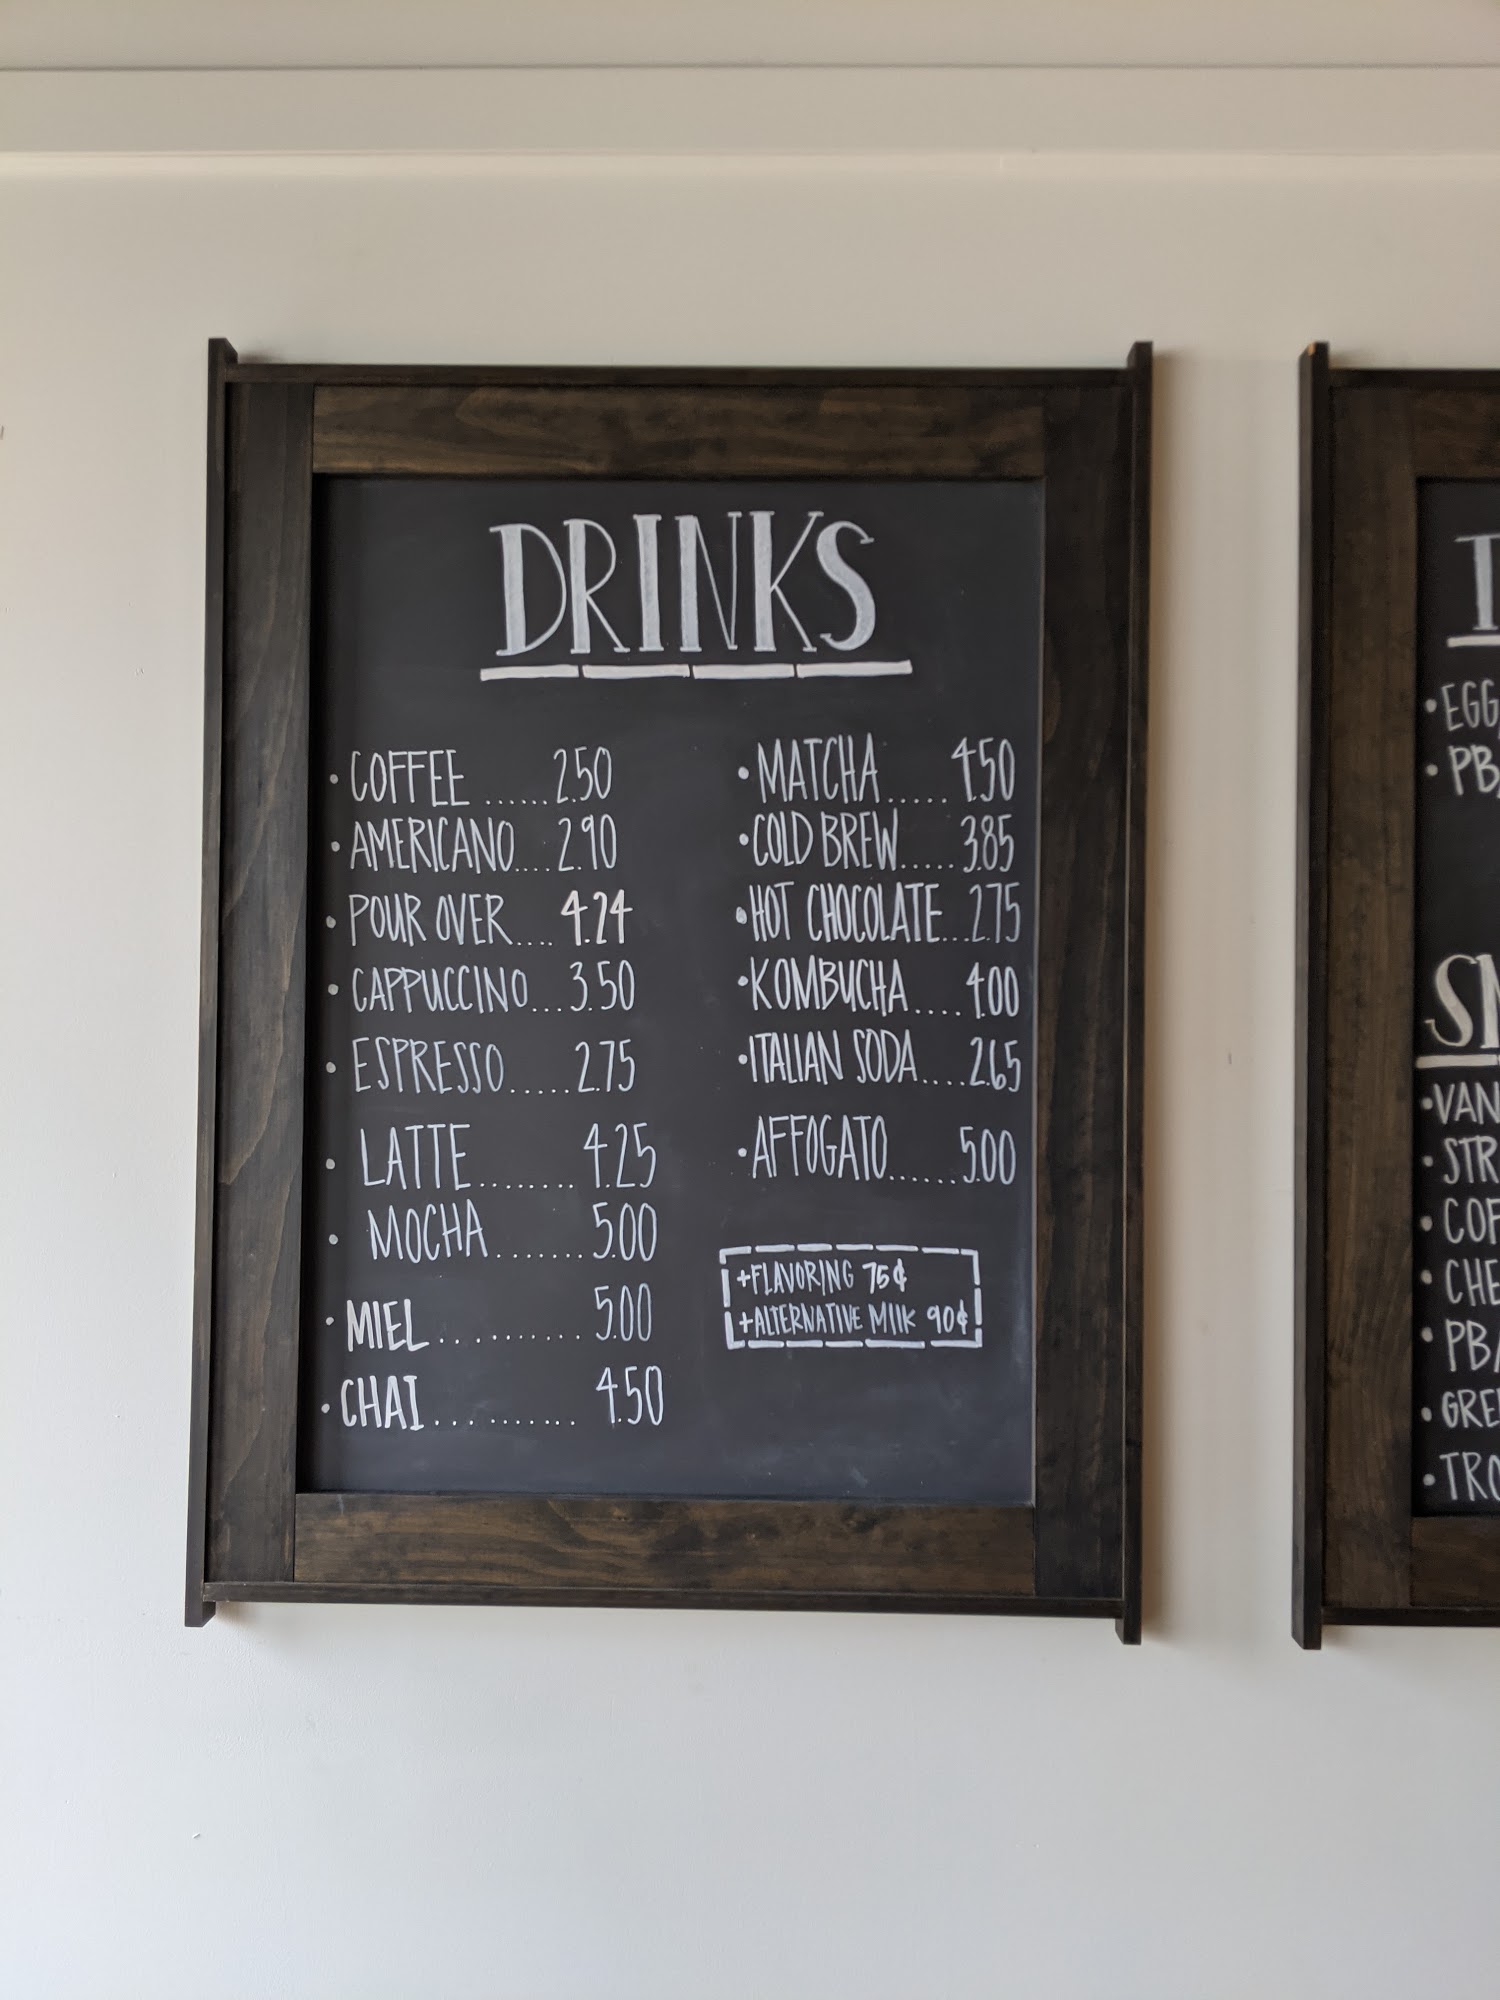 DRINKS
• COFFEE ...... 2.50
• AMERICANO.... 2.90
• POUR OVER.... 4.24
• CAPPUCCINO... 3.50
• ESPRESSO..... 2.75
• LATTE........ 4.25
• MOCHA....... 5.00
• MIEL.......... 5.00
• CHAI.......... 4.50
• MATCHA..... 4.50
• COLD BREW..... 3.85
• HOT CHOCOLATE... 2.75
• KOMBUCHA.... 4.00
• ITALIAN SODA.... 2.65
• AFFOGATO...... 5.00
+FLAVORING 75¢
+ALTERNATIVE MIlK 90¢
• EGG
• PB
• VAN
• STR
• COF
• CHE
• PB/
• GRE
• TRO